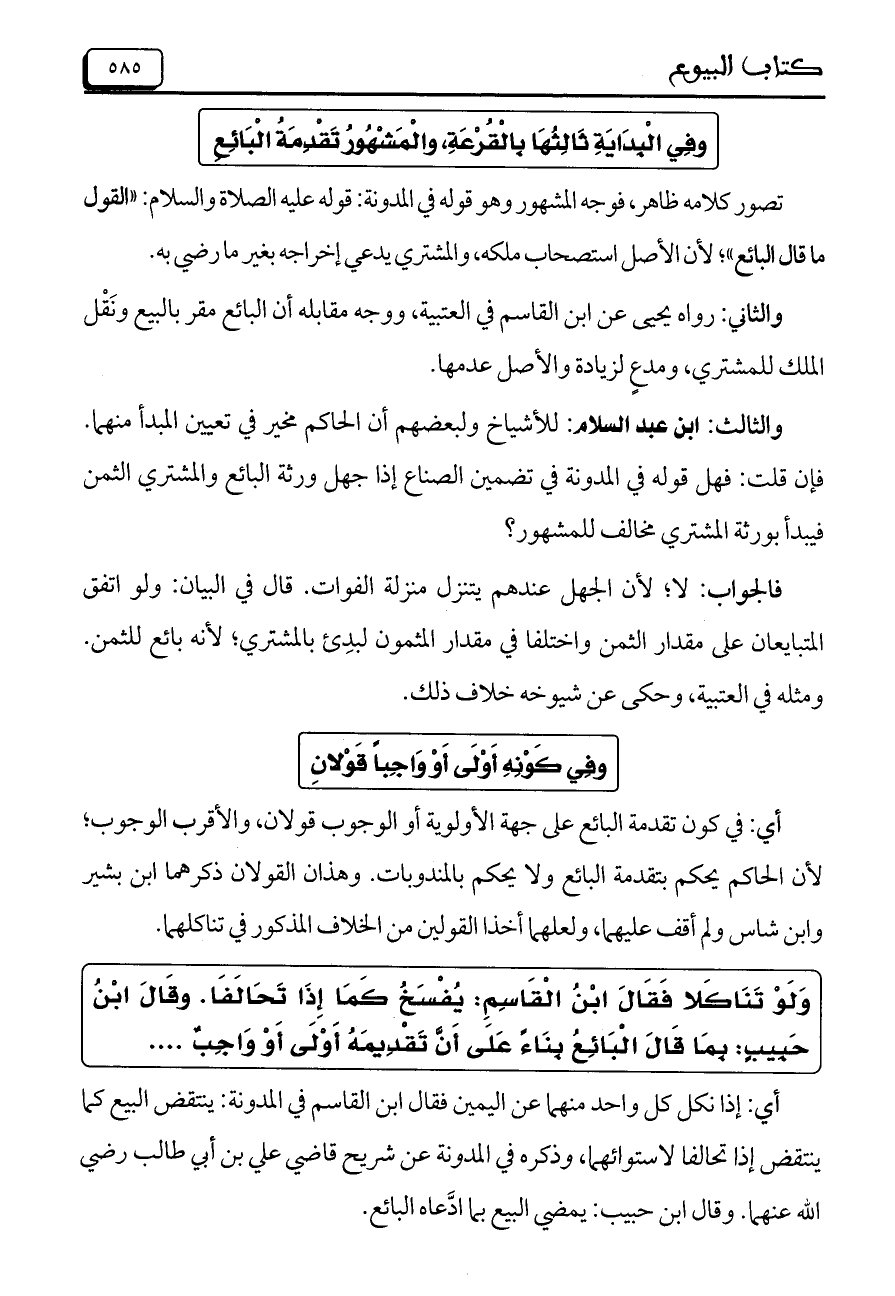 كتاب البيوع
٥٨٥
وفِي الْبِدَايَةِ ثَالِثُهَا بِالْقُرْعَةِ، والْمَشْهُورُ تَقْدِمَةُ الْبَائِعِ
تصور كلامه ظاهر، فوجه المشهور وهو قوله في المدونة: قوله عليه الصلاة والسلام: «القول
ما قال البائع»؛ لأن الأصل استصحاب ملكه، والمشتري يدعي إخراجه بغير ما رضي به.
والثاني: رواه يحيى عن ابن القاسم في العتبية، ووجه مقابله أن البائع مقر بالبيع ونَقْل
الملك للمشتري، ومدعٍ لزيادة والأصل عدمها.
والثالث: ابن عبد السلام: للأشياخ ولبعضهم أن الحاكم مخير في تعيين المبدأ منهما.
فإن قلت: فهل قوله في المدونة في تضمين الصناع إذا جهل ورثة البائع والمشتري الثمن
فيبدأ بورثة المشتري مخالف للمشهور؟
فالجواب: لا؛ لأن الجهل عندهم يتنزل منزلة الفوات. قال في البيان: ولو اتفق
المتبايعان على مقدار الثمن واختلفا في مقدار المثمون لبدِئ بالمشتري؛ لأنه بائع للثمن.
ومثله في العتبية، وحكى عن شيوخه خلاف ذلك.
وفِي كَوْنِهِ أَوْلَى أَوْ وَاجِباً قَوْلانِ
أي: في كون تقدمة البائع على جهة الأولوية أو الوجوب قولان، والأقرب الوجوب؛
لأن الحاكم يحكم بتقدمة البائع ولا يحكم بالمندوبات. وهذان القولان ذكرهما ابن بشير
وابن شاس ولم أقف عليهما، ولعلهما أخذا القولين من الخلاف المذكور في تناكلهما.
وَلَوْ تَنَاكَلا فَقَالَ ابْنُ الْقَاسِمِ: يُفْسَخُ كَمَا إِذَا تَحَالَفَا. وقَالَ ابْنُ
حَبِيبٍ: بِمَا قَالَ الْبَائِعُ بِنَاءً عَلَى أَنَّ تَقْدِيمَهُ أَوْلَى أَوْ وَاجِبٌ ....
أي: إذا نكل كل واحد منهما عن اليمين فقال ابن القاسم في المدونة: ينتقض البيع كما
ينتقض إذا تحالفا لاستوائهما، وذكره في المدونة عن شريح قاضي علي بن أبي طالب رضي
الله عنهما. وقال ابن حبيب: يمضي البيع بما ادَّعاه البائع.